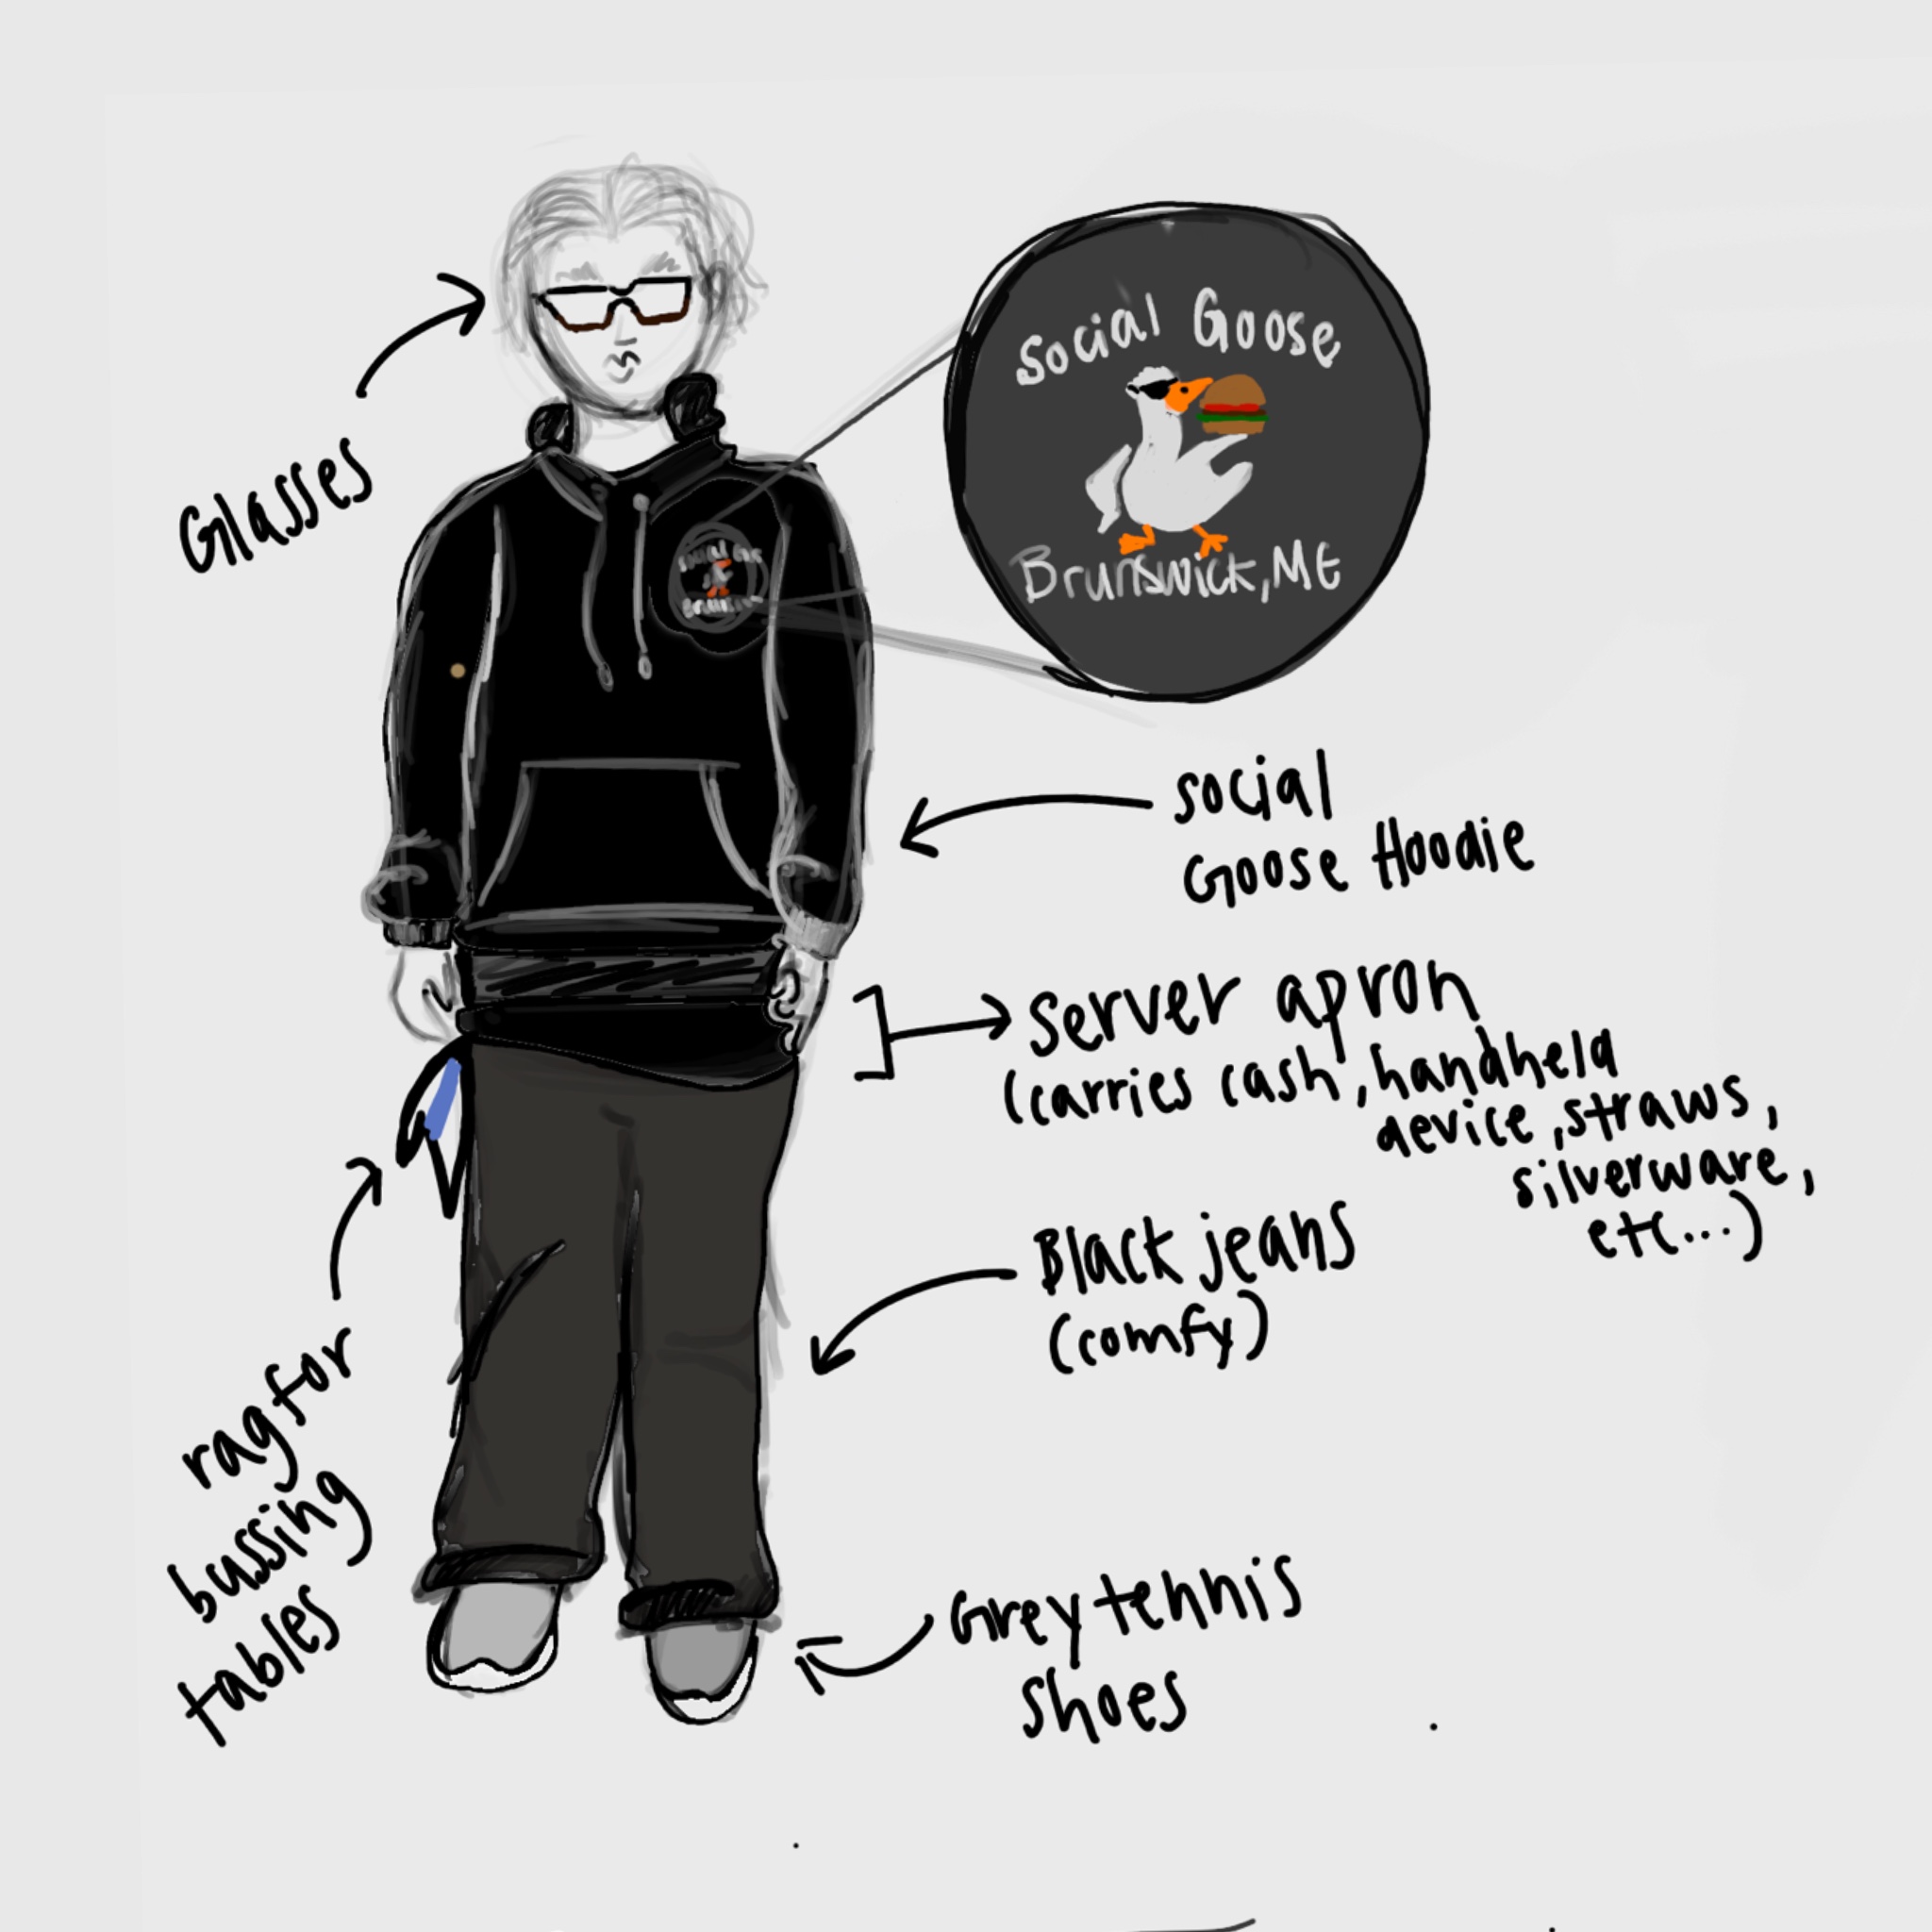 Glasses
Social Goose
Brunswick, ME
social
Goose Hoodie
Server apron
(carries cash, handheld
device, straws,
silverware,
etc...)
Black jeans
(comfy)
rag for
bussing
tables
Grey tennis
shoes